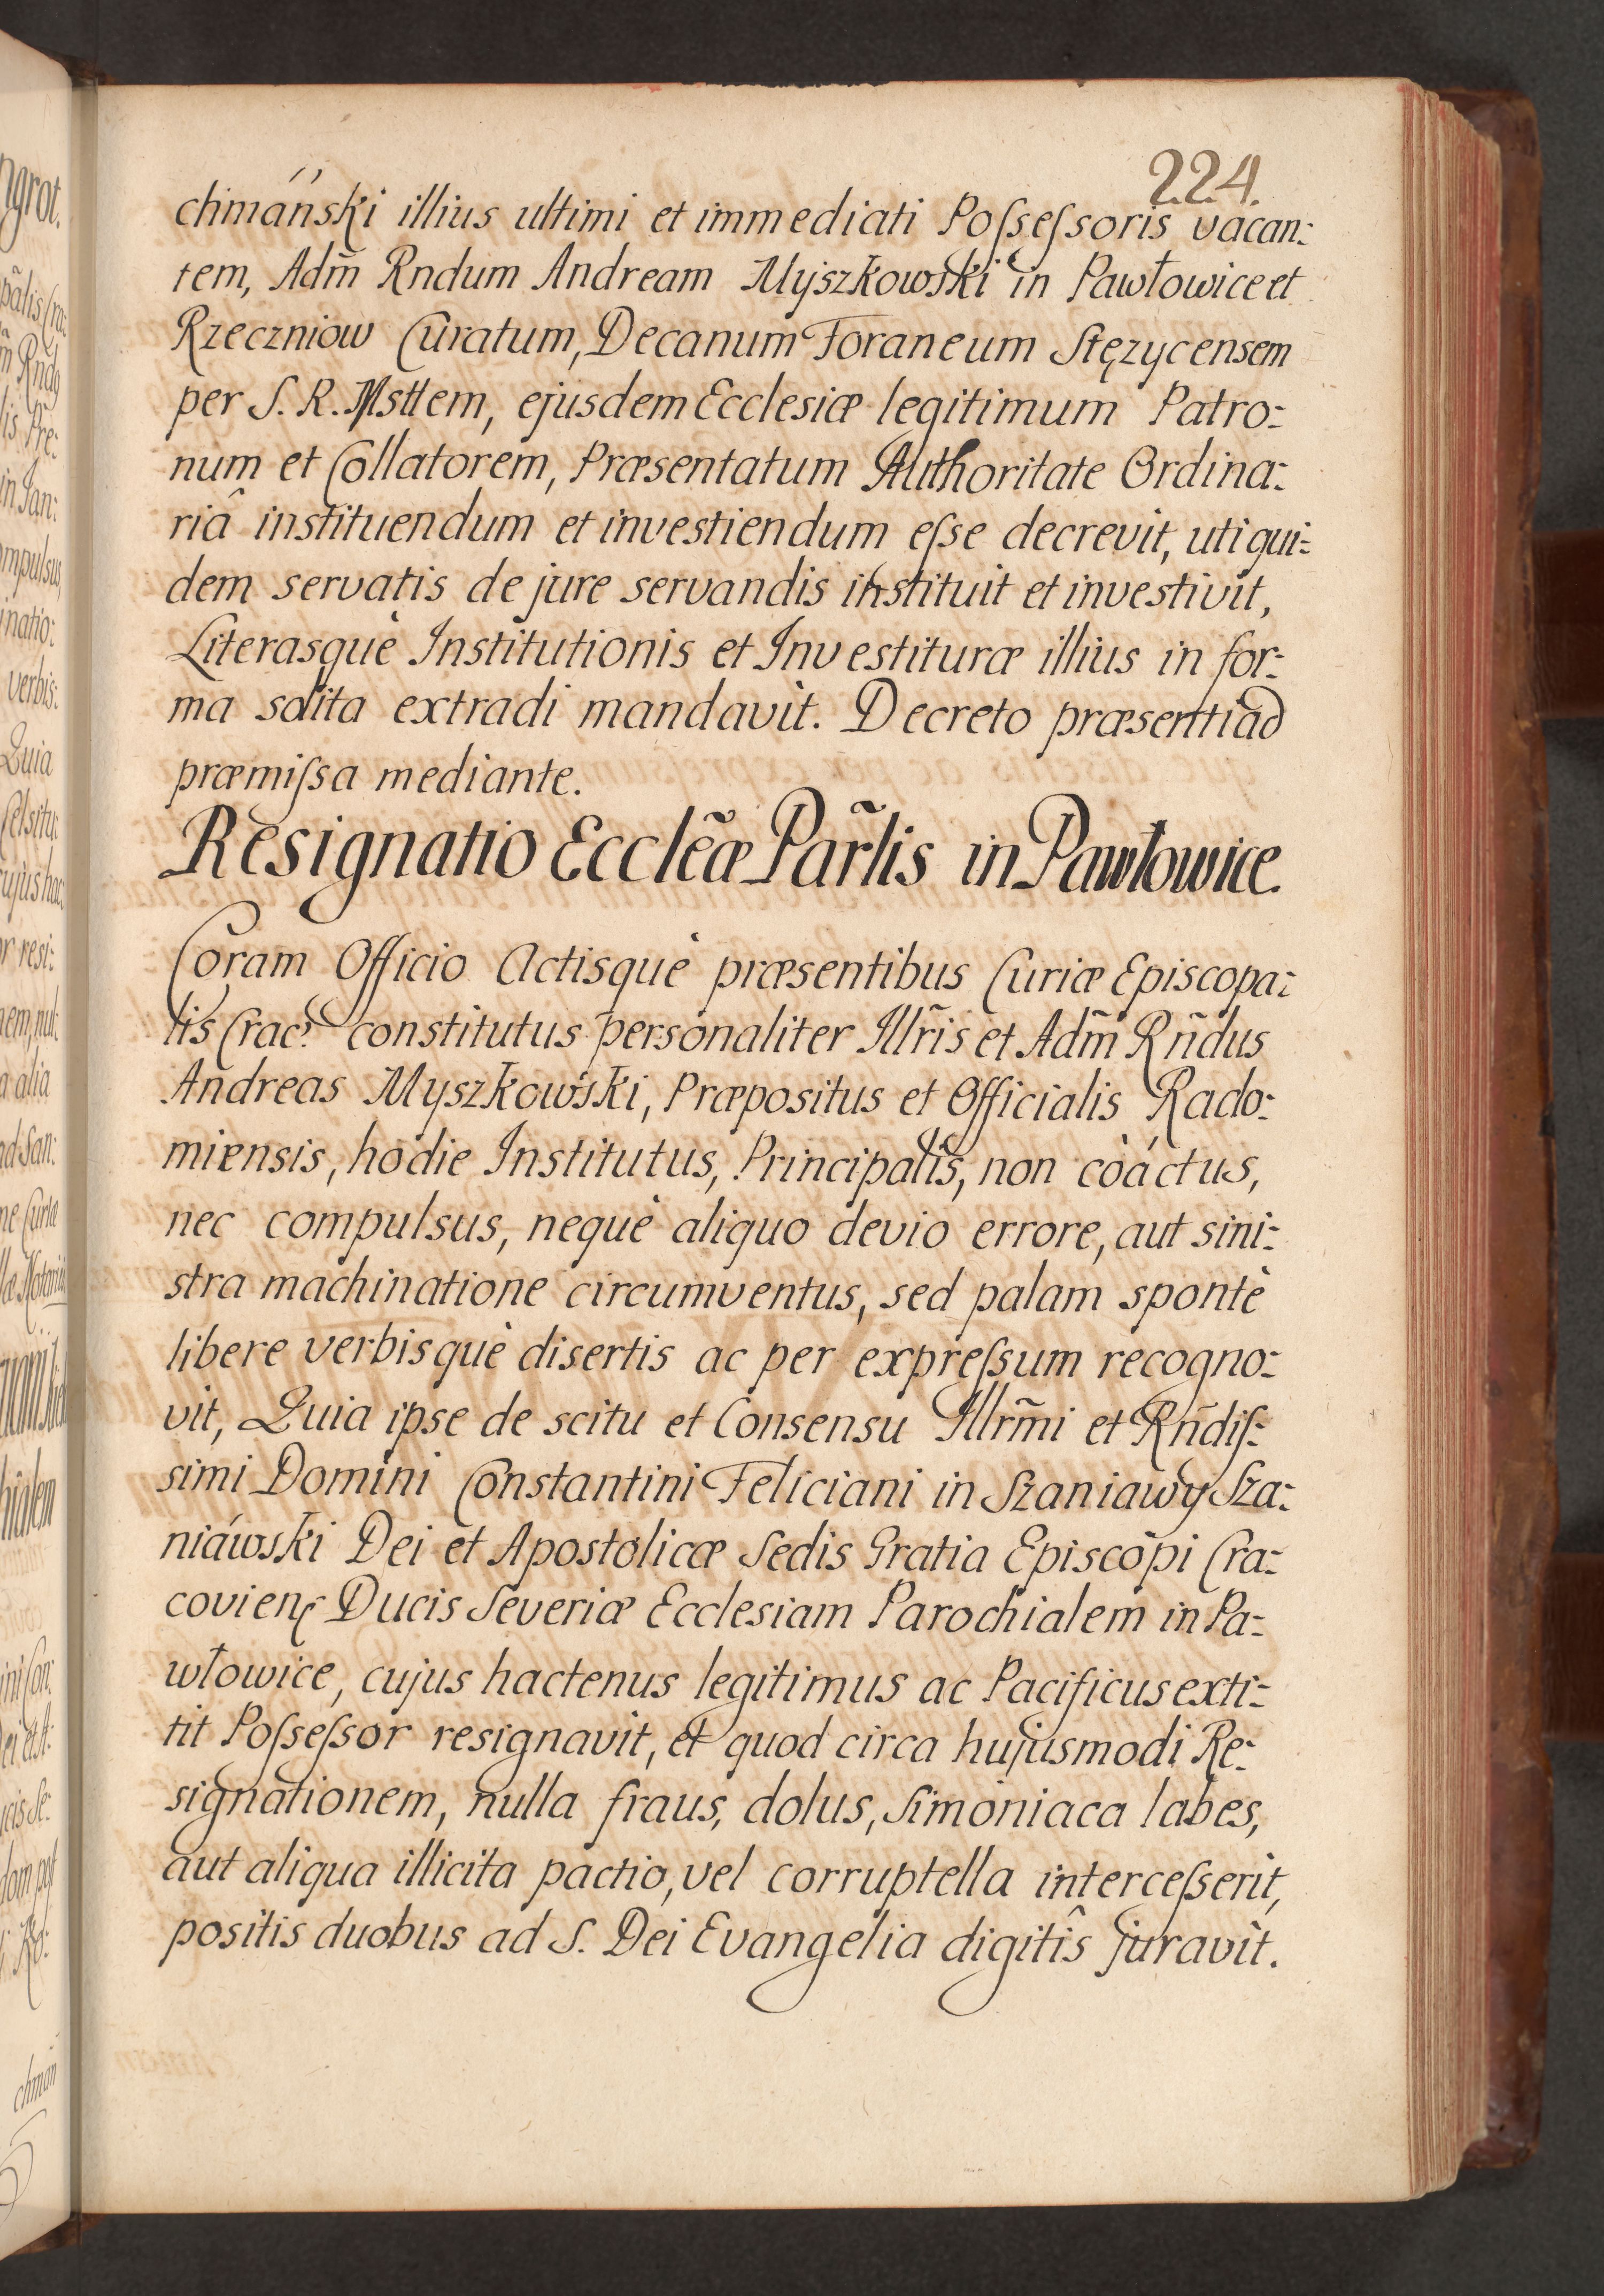 224.
chmáński illius ultimi et immediati Poſseſsoris vacan:
tem, Adm̃ Rndum Andream Myszkowski in Pawłowice et
Rzeczniow Curatum, Decanum Foraneum Stęzycensem
per S. R. Msttem, ejusdem Ecclesiæ legitimum Patro:
num et Collatorem, Præsentatum Authoritate Ordina:
riâ instituendum et investiendum eſse decrevit, uti qui:
dem servatis de jure servandis instituit et investivit,
Literasquè Institutionis et Investituræ illius in for:
ma solita extradi mandavit. Decreto præsenti ad
præmiſsa mediante.
Resignatio Ecclẽæ Par̃lis in Pawłowice.
Coram Officio Actisquè præsentibus Curiæ Episcopa:
lis Crac: constitutus personaliter Illr̃is et Adm̃ Rñdus
Andreas Myszkowski, Præpositus et Officialis Rado:
miensis, hodie Institutus, Principalis, non coactus,
nec compulsus, nequè aliquo devio errore, aut sini:
stra machinatione circumventus, sed palam spontè
libere verbisquè disertis ac per expreſsum recogno:
vit, Quia ipse de scitu et Consensu Illrm̃i et Rñdiſ:
simi Domini Constantini Feliciani in Szaniawy Sza:
niáwski Dei et Apostolicæ Sedis Gratia Episcopi Cra:
covienſ Ducis Severiæ Ecclesiam Parochialem in Pa:
włowice, cujus hactenus legitimus ac Pacificus exti:
tit Poſseſsor resignavit, et quod circa hujusmodi Re:
signationem, nulla fraus, dolus, simoniaca labes,
aut aliqua illicita pactio, vel corruptella interceſserit,
positis duobus ad S. Dei Evangelia digitîs juravit.